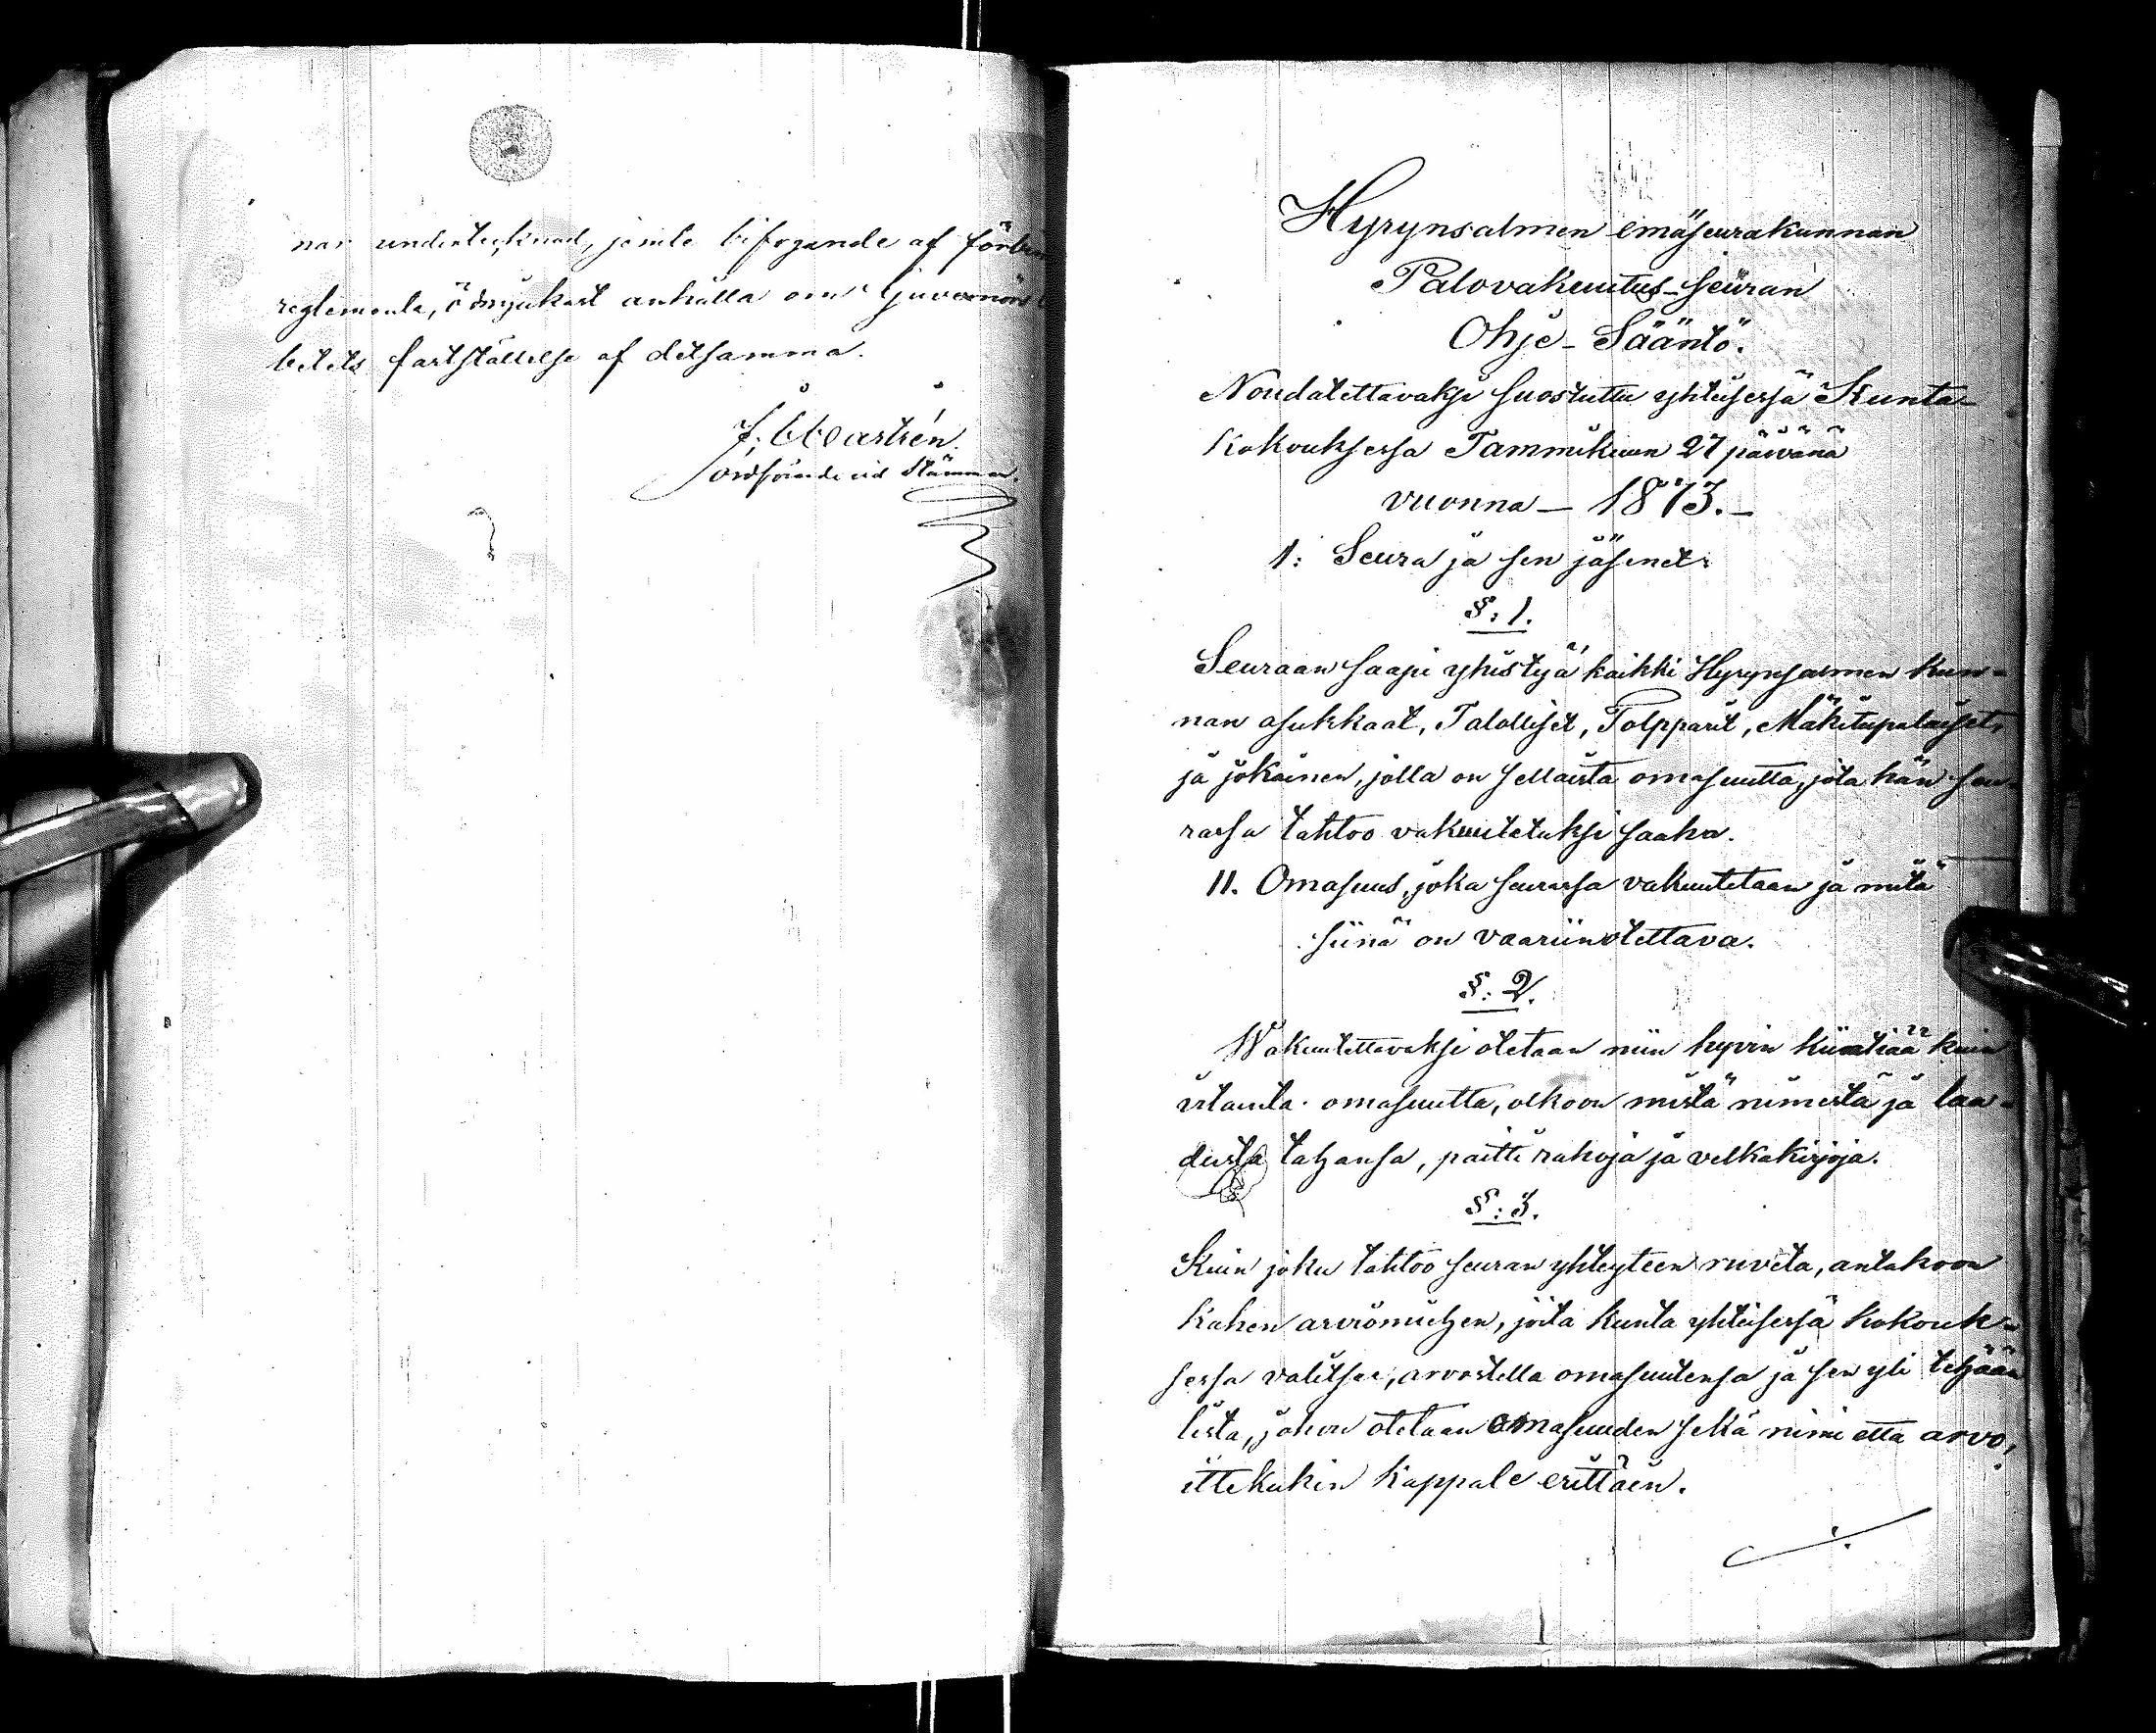 nar undertecknad, jemte bifogande af
reglemente, ödmjukast anhålla om Guvernörs
betets fastställelse af detsamma.
J. C. Castrén
ordförande vid Stämman.
Hyrynsalmen emäseurakunnan
Palovakuutus-seuran
Ohje-Sääntö.
Noudatettavaksi suostuttu yhteisessä Kunta-
Kokouksessa Tammikuun 27 päivänä
vuonna – 1873. –
1: Seura ja sen jäsenet:
§: 1.
Seuraan saapi yhistyä kaikki Hyrynsalmen kun-
nan asukkaat, Talolliset, Tolpparit, Mäkitupalaiset,
ja jokainen, jolla on sellaista omasuutta, jota hän seu-
rassa tahtoo vakuutetuksi saaha.
II. Omasuus, joka seurassa vakuutetaan ja mitä
siinä on vaariinotettava.
§: 2.
Wakuutettavaksi otetaan niin hyvin kiinteää kuin
irtainta omasuutta, olkoon mistä nimestä ja laa-
dusta tahansa, paitti rahoja ja velkakirjoja.
§: 3.
Kuin joku tahtoo seuran yhteyteen ruveta, antakoon
kahen arviomiehen, joita kunta yhteisessä kokouk-
sessa valitsee, arvostella omasuutensa ja sen yli tehjään
lista, johon otetaan omasuuden sekä nimi että arvo,
ittekukin kappale erittäin.